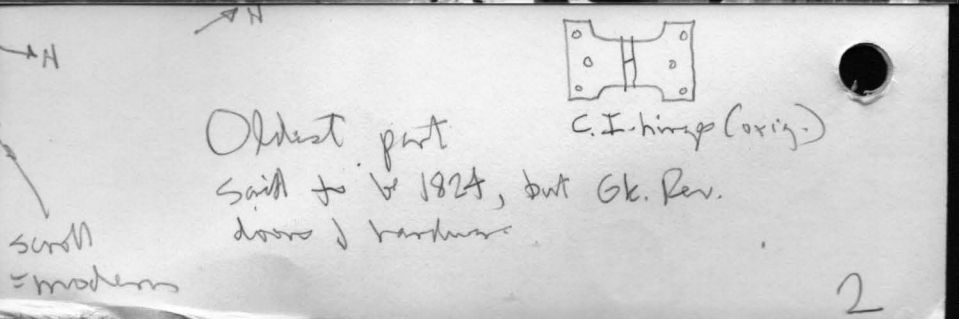 H
H
C.I. hinge (orig.)
Oldest part
said to be 1824, but Gk. Rev.
doors & hardware
scroll
= modern
2